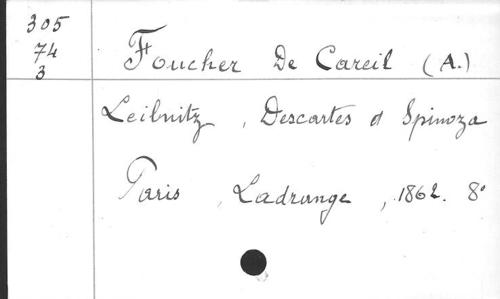 305
74
3
Foucher De Careil (A.)
Leibnitz, Descartes et Spinoza
Paris, Ladrange, 1862. 8°